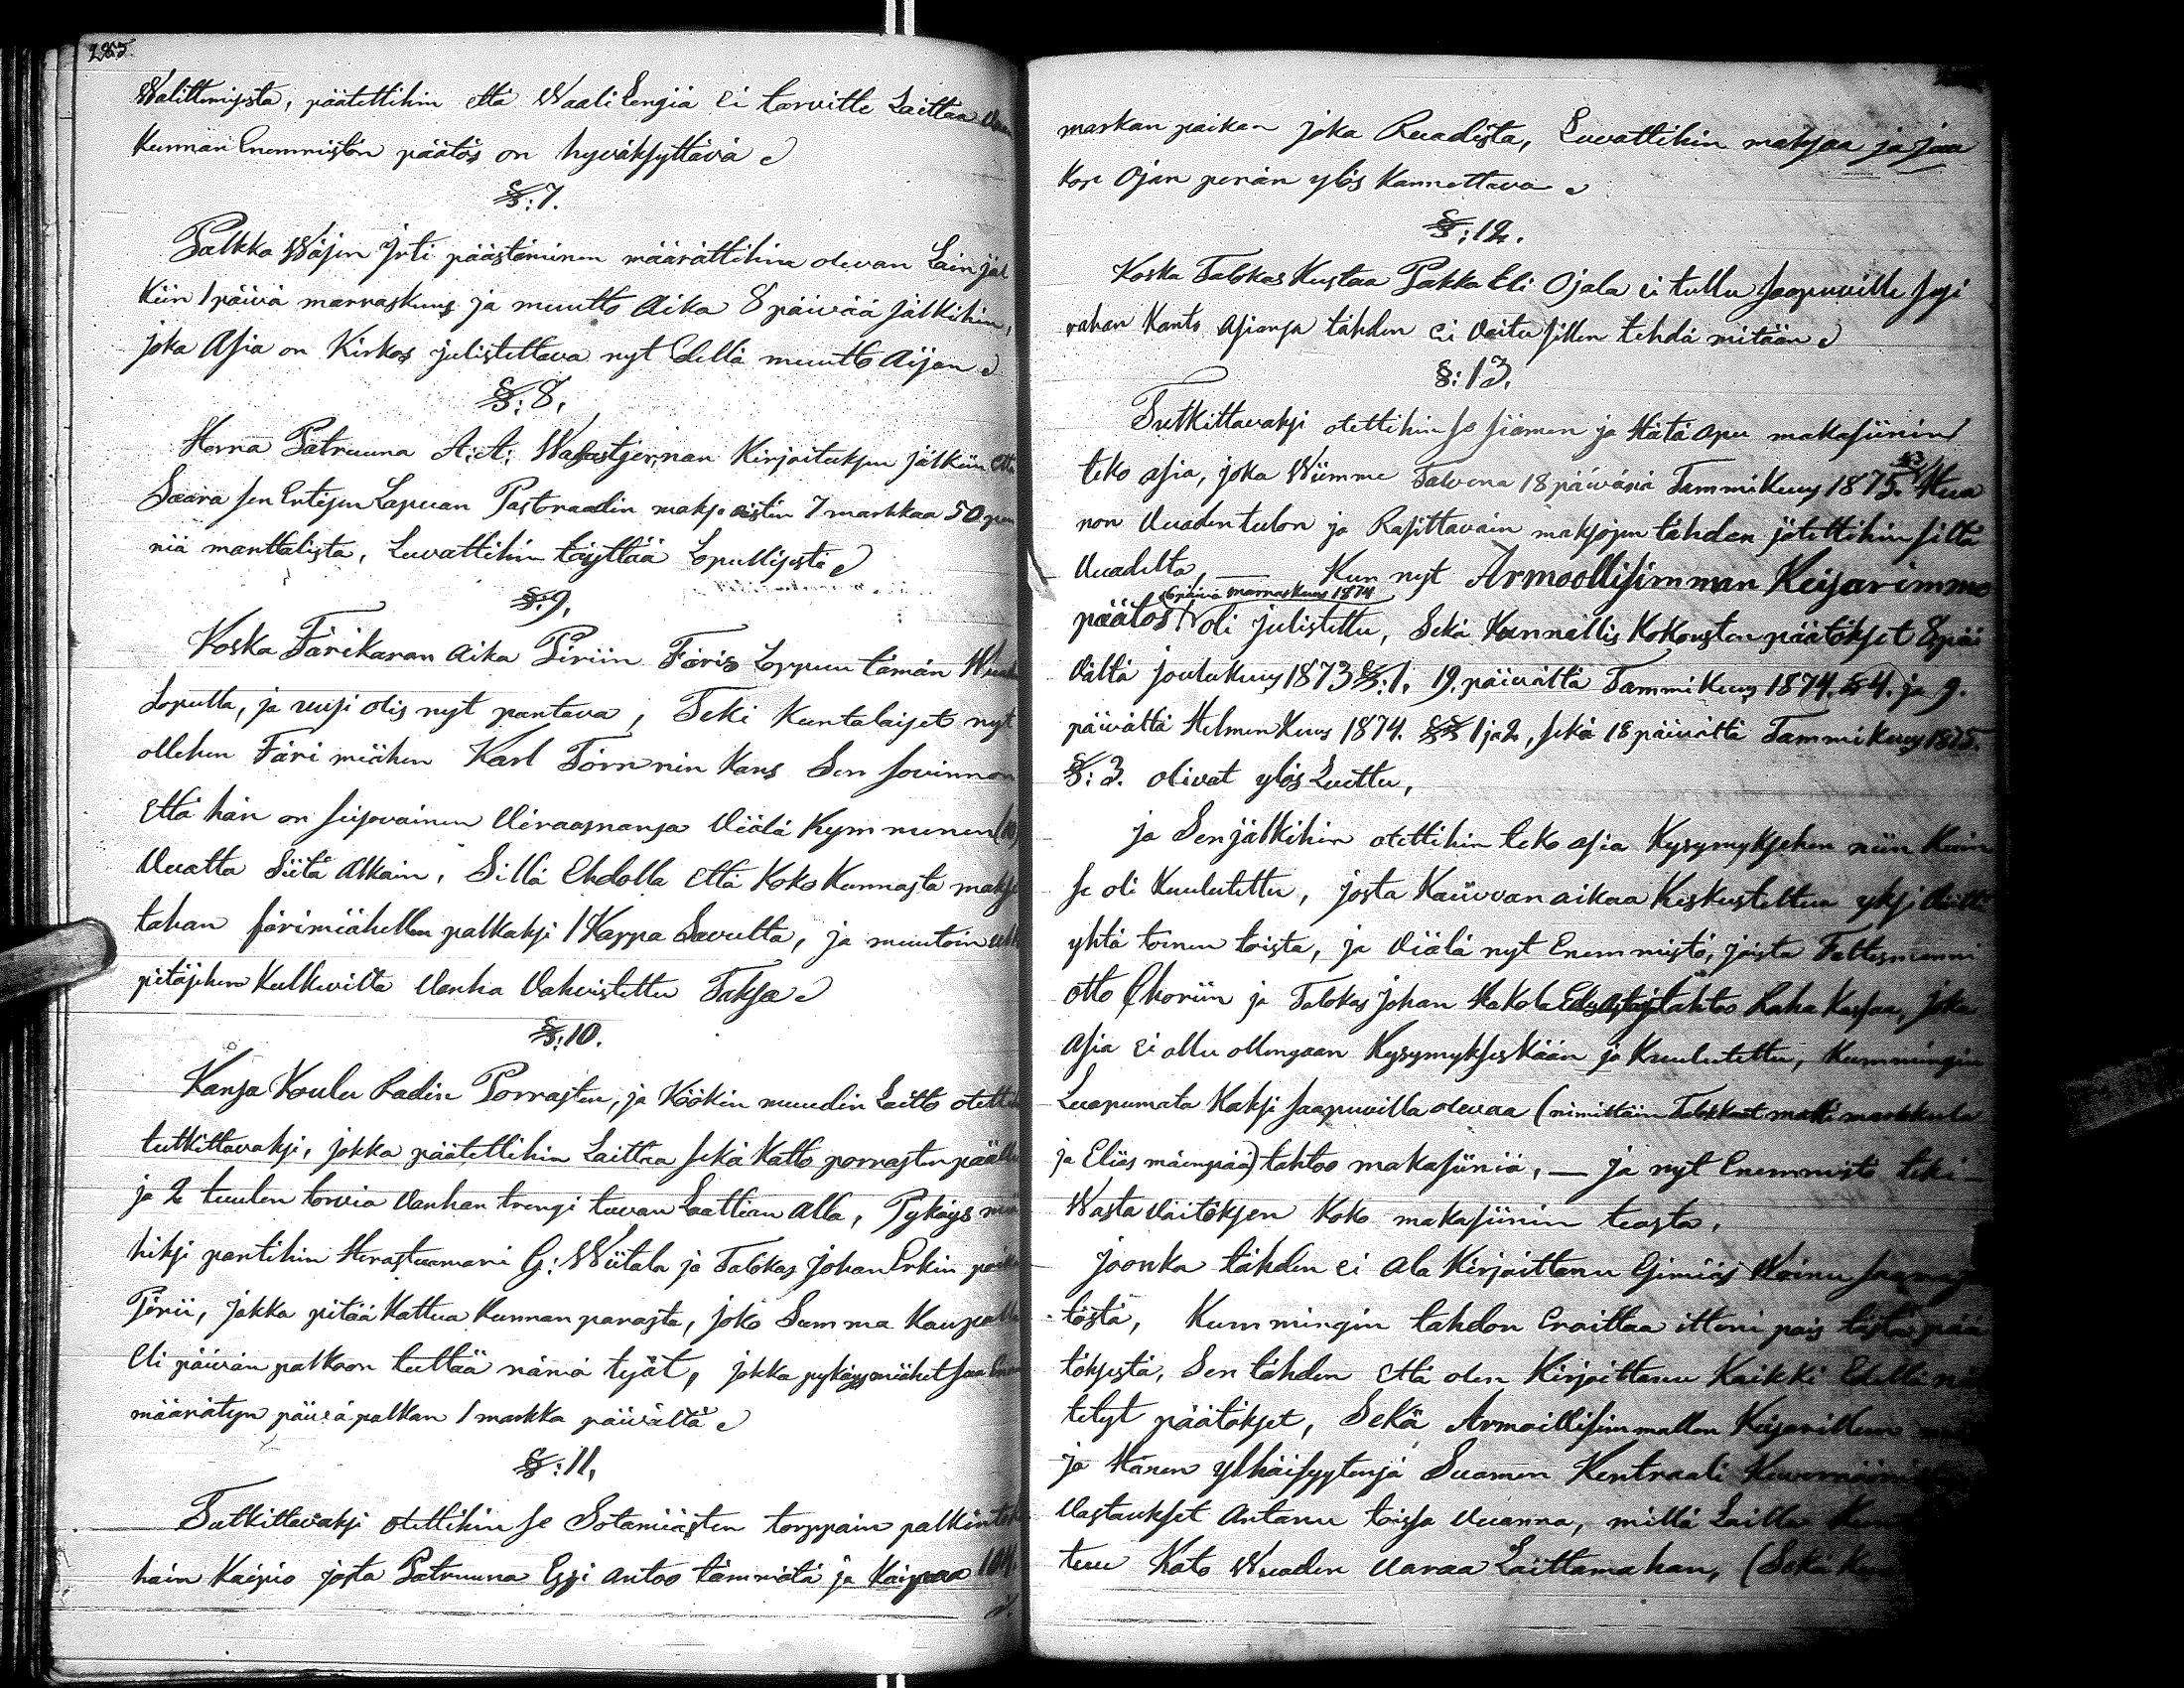 285.
Walittemisesta, päätettihin että Waali Lengiä ei tarvitte Laittaa
Kunnan Enemmistön päätös on hyväksyttävä
§:7.
Palkka Wäjen Irti päästäminen määrättihin olevan Lain jäl
kiin 1 päivä marraskuus ja muutto Aika 8 päivää jälkihin,
joka Asia on Kirkos julistettava nyt Edellä muutto Aijan
§:8.
Herra Patruuna A: A: Wasastjernan Kirjoituksen jälkiin että
Saara sen Entisen Lapuan Pastoraadin maksoistin 7 markkaa 50 pen
niä manttalista, Luvattihin täyttää Lopullisesti
§:9.
Koska Färikaran Aika Piriin Färis Loppuu tämän
Lopulla, ja uusi olis nyt pantava, Teki Kuntalaiset nyt
ollehen Färi miähen Karl Törnrin kans Sen sovinnon
Että hän on seisovainen Virasmansa Viälä Kymmenen (10)
Vuatta Siitä Alkain, Sillä Ehdolla että Koko Kunnasta makse
tahan färimiähellen palkaksi 1 Kappa Savulta, ja muutoin
pitäjehen kulkevilta Vanha Vahvistettu Taksa
§:10.
Kansa Koulu Radin Porrasten, ja Köökin muudin Laitto otettihin
tutkittavaksi, jokka päätettihin Laittaa sekä Katto porrasten päälle
ja 2 tuulen torvia Vanhan trengi tuvan Laattian alla, Pykäys miä
hiksi pantihin Herastuamari G: Wiitala ja Talokas Johan Erkin poika
Pirii, Jokka pitää Kattua Kunnan parasta, joko Summa Kaupalla
Eli päivän palkoon teettää nämä työt, jokka pykäysmiähet saa
määrätyn päivä palkan 1 markka päivältä
§:11.
Tutkittavaksi otettihin se Sotamiästen torppain palkin
hain Kaipio josta Patruuna Essi antoo tämmötä ja Kaipaa 104.
markan paikan joka Ruadista, Luvattihin maksaa ja jaa
kos Ojan perän ylös kannettava
§:12.
Koska Talokas Kustaa Pakka Eli Ojala ei tullu saapuville susi
rahan Kanto Asiansa tähden ei voitu sillen tehdä mitään
§:13.
Tutkittavaksi otettihin se siämen ja Hätä Apu makasiinin
teko asia, joka Wiimme Talvena 18 päivänä Tammikuus 1875. §3 Hua
non Vuaden tulon ja Rasittavain maksojen tähden jätettihin siltä
Vuadelta, — Kun nyt Armoollisimman Keisarimme
päivä marraskuus 1874
päätös oli julistettu, Sekä Kunnallis Kokousten päätökset 8 päi
vältä joulukuus 1873 §:1. 19. päivältä Tammikuus 1874. §4. ja 9.
päivältä Helmenkuus 1874. §§ 1 ja 2, sekä 18 päivältä Tammikuus 1875.
§:3. olivat ylös Luettu,
ja Senjälkihin otettihin teko asia Kysymyksehen niin kuin
se oli Kuulutettu, josta Kauvvan aikaa Keskusteltua yksi
yhtä toinen toista, ja Viälä nyt Enemmistö, joista Faltesmanni
Otto Choriin ja Talokas Johan Hakola tahtoo Raha Kassaa, joka
Asia ei ollu ollengaan Kysymykseskään ja Kuulutettu, Kummingin
Luapumata Kaksi saapuvilla olevaa (nimittäin Talokkaat matti markkula
ja Elias mäenpää) tahtoo makasiinia, — ja nyt Enemmistö teki —
Wasta väitöksen koko makasiinin teosta,
joonka tähden ei ala Kirjoittanu Esimiäs Woinu
tästä, Kummingin tahdon Eroittaa itteni pois tästä pää
töksestä, Sen tähden että olen Kirjoittanu Kaikki Edellä
tetyt päätökset, Sekä Armoillisimmallen Keisarillen
ja Hänen ylhäisyytensä Suomen Kentraali Kuvernööri
Vastaukset Antanu toissa Vuanna, millä Lailla
tuu Kato Wuaden Varaa Laittamahan, (Sekä